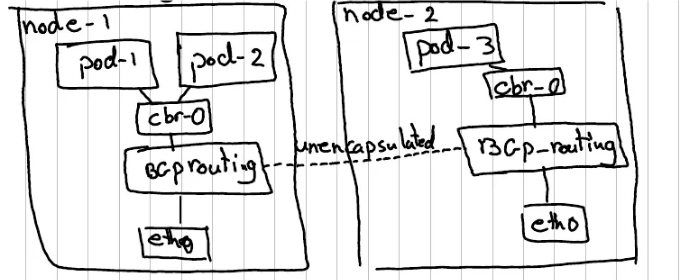 node-1
pod-1
pod-2
cbr-0
BGp routing
eth0
unencapsulated
node-2
pod-3
cbr-0
BGp-routing
eth0